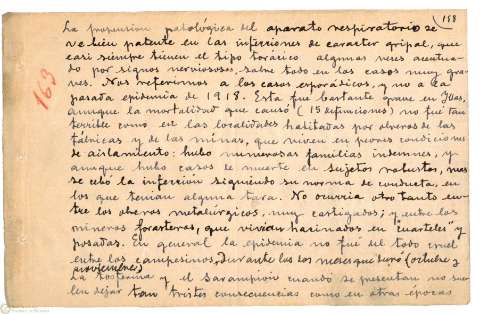 158
163
La propension patológica del aparato respiratorio se
ve bien patente en las infecciones de caracter gripal, que
casi siempre tienen el tipo torácico algunas veces acentua-
do por signos nerviososos, sobre todo en las casos muy gra-
ves. Nos referimos a los casos esporádicos, y no a la
pasada epidemia de 1918. Esta fué bastante grave en
aunque la mortalidad que causó (15 defunciones) no fué tan
terrible como en las localidades habitadas por obreros de las
fábricas y de las minas, que viven en peores condiciones
de aislamiento: hubo numerosas familias indemnes, y
aunque hubo casos de muerte en sujetos robustos, mas
se cebó la infeccion siguiendo su norma de conducta, en
los que tenian alguna tara. No ocurria otro tanto en-
tre los obreros metalúrgicos, muy castigados; y entre los
mineros forasteros, que vivian hacinados en "cuarteles" y
posadas. En general la epidemia no fué del todo cruel
entre los campesinos, durante los dos meses que duró (octubre y
noviembre)
La tosferina y el sarampión cuando se presentan no sue-
len dejar tan tristes consecuencias como en otras épocas